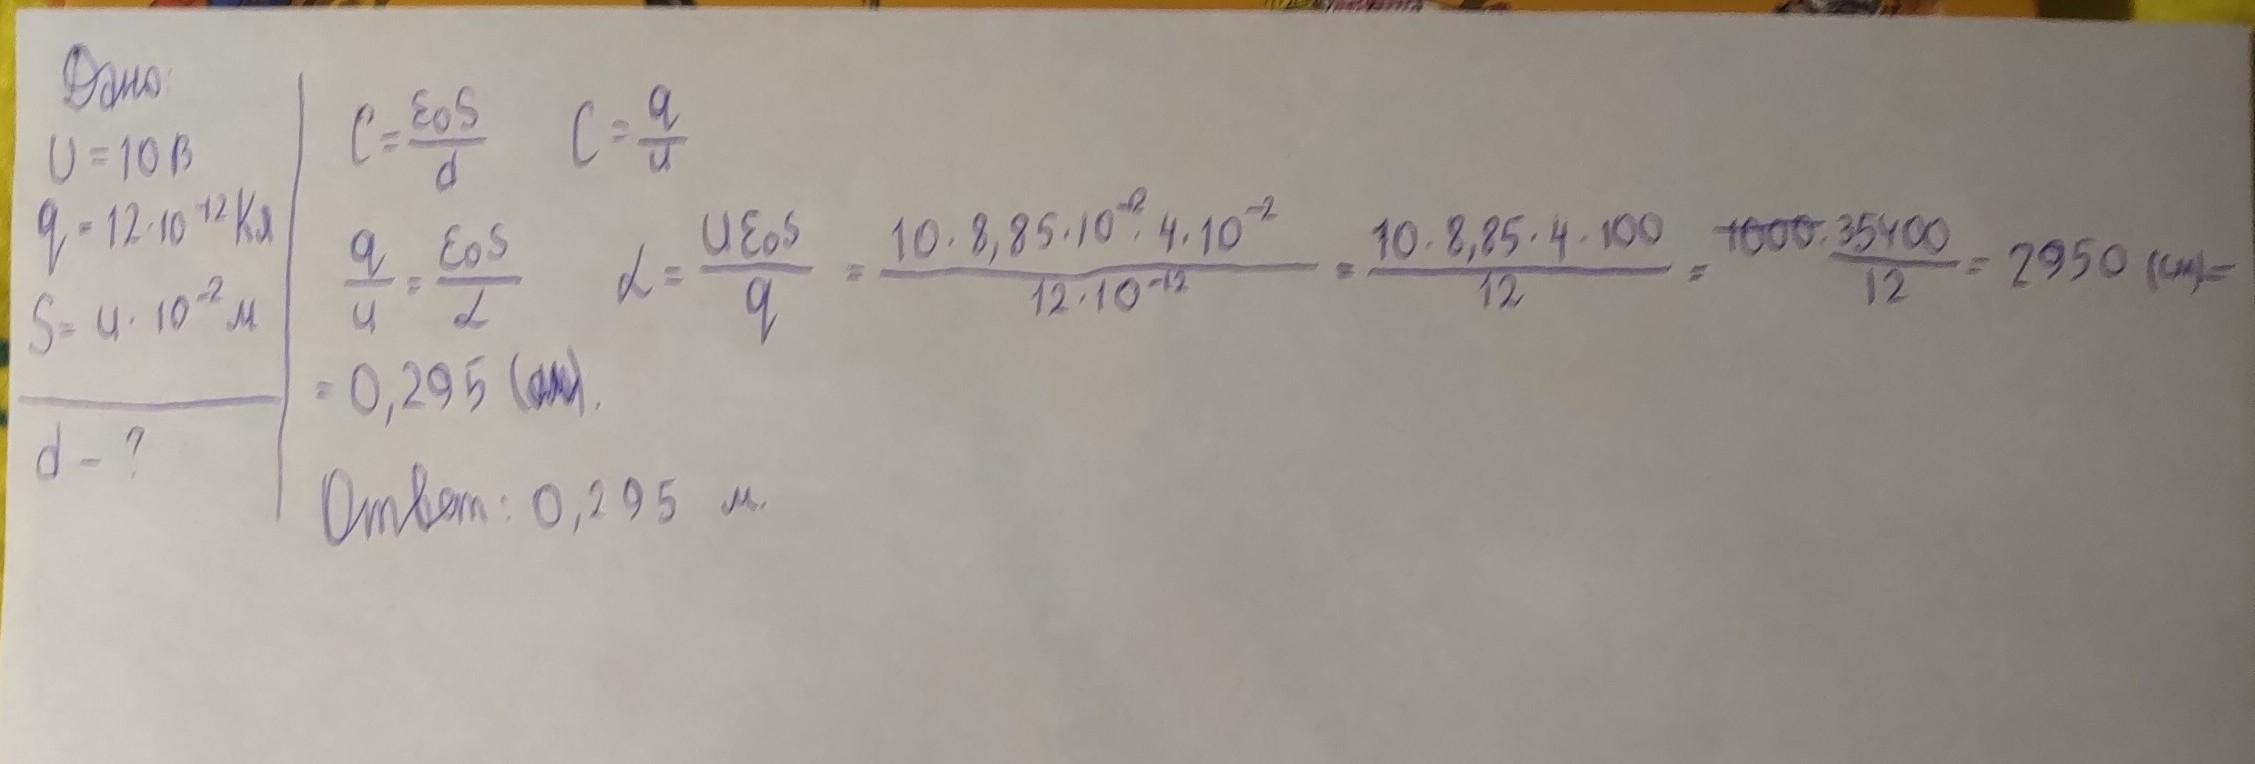 Дано:
U = 10 В
q = 12·10⁻¹² Кл
S = 4·10⁻² м
d - ?
C = ε₀S/d C = q/u
q/u = ε₀S/d d = Uε₀S/q = 10·8,85·10⁻¹²·4·10⁻²/12·10⁻¹² = 10·8,85·4·100/12 = 1000·35400/12 = 2950 (см) =
= 0,295 (м).
Ответ: 0,295 м.